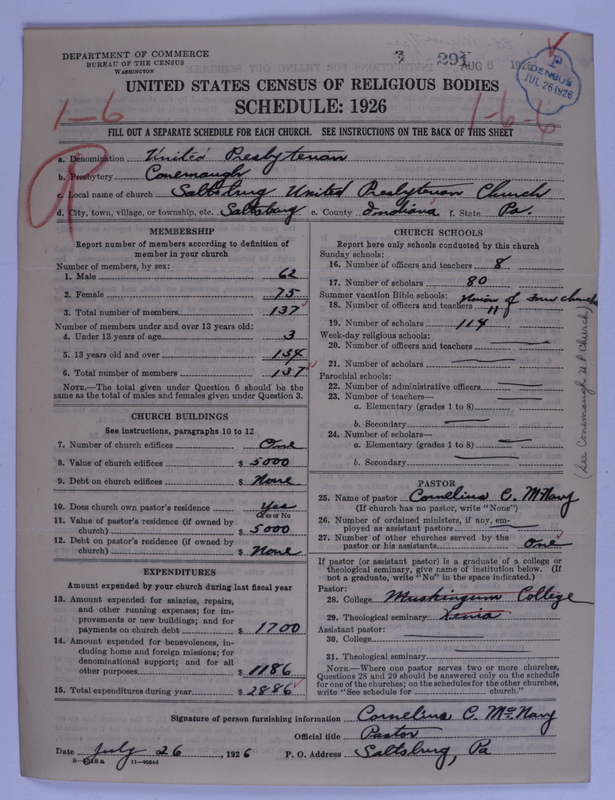 DEPARTMENT OF COMMERCE
BUREAU OF THE CENSUS
WASHINGTON
3 291
AUG 6 1926
P
CENSUS
JUL 26 1926
UNITED STATES CENSUS OF RELIGIOUS BODIES
SCHEDULE: 1926
1-6
1-6-6
FILL OUT A SEPARATE SCHEDULE FOR EACH CHURCH. SEE INSTRUCTIONS ON THE BACK OF THIS SHEET
a. Denomination United Presbyterian
b. Presbytery Conemaugh
c. Local name of church Saltsburg United Presbyterian Church
d. City, town, village, or township, etc. Saltsburg e. County Indiana f. State Pa.
MEMBERSHIP
Report number of members according to definition of
member in your church
Number of members, by sex:
1. Male 62
2. Female 75
3. Total number of members 137
Number of members under and over 13 years old:
4. Under 13 years of age 3
5. 13 years old and over 134
6. Total number of members 137
NOTE.—The total given under Question 6 should be the
same as the total of males and females given under Question 3.
CHURCH BUILDINGS
See instructions, paragraphs 10 to 12
7. Number of church edifices One
8. Value of church edifices $ 5000
9. Debt on church edifices $ None
10. Does church own pastor's residence Yes
Yes or No
11. Value of pastor's residence (if owned by
church) $ 5000
12. Debt on pastor's residence (if owned by
church) $ None
EXPENDITURES
Amount expended by your church during last fiscal year
13. Amount expended for salaries, repairs,
and other running expenses; for im-
provements or new buildings; and for
payments on church debt $ 1700
14. Amount expended for benevolences, in-
cluding home and foreign missions; for
denominational support; and for all
other purposes $ 1186
15. Total expenditures during year $ 2886
CHURCH SCHOOLS
Report here only schools conducted by this church
Sunday schools:
16. Number of officers and teachers 8
17. Number of scholars 80
Summer vacation Bible schools: Union of four churches
18. Number of officers and teachers 11
19. Number of scholars 114
Week-day religious schools:
20. Number of officers and teachers
21. Number of scholars
Parochial schools:
22. Number of administrative officers
23. Number of teachers—
a. Elementary (grades 1 to 8)
b. Secondary
24. Number of scholars—
a. Elementary (grades 1 to 8)
b. Secondary
(See Conemaugh U P Church)
PASTOR
25. Name of pastor Cornelius C. McNary
(If church has no pastor, write "None")
26. Number of ordained ministers, if any, em-
ployed as assistant pastors
27. Number of other churches served by the
pastor or his assistants One
If pastor (or assistant pastor) is a graduate of a college or
theological seminary, give name of institution below. (If
not a graduate, write "No" in the space indicated.)
Pastor:
28. College Muskingum College
29. Theological seminary Xenia
Assistant pastor:
30. College
31. Theological seminary
NOTE.—Where one pastor serves two or more churches,
Questions 28 and 29 should be answered only on the schedule
for one of the churches; on the schedules for the other churches,
write "See schedule for church."
Signature of person furnishing information Cornelius C. McNary
Official title Pastor
Date July 26, 1926 P. O. Address Saltsburg, Pa